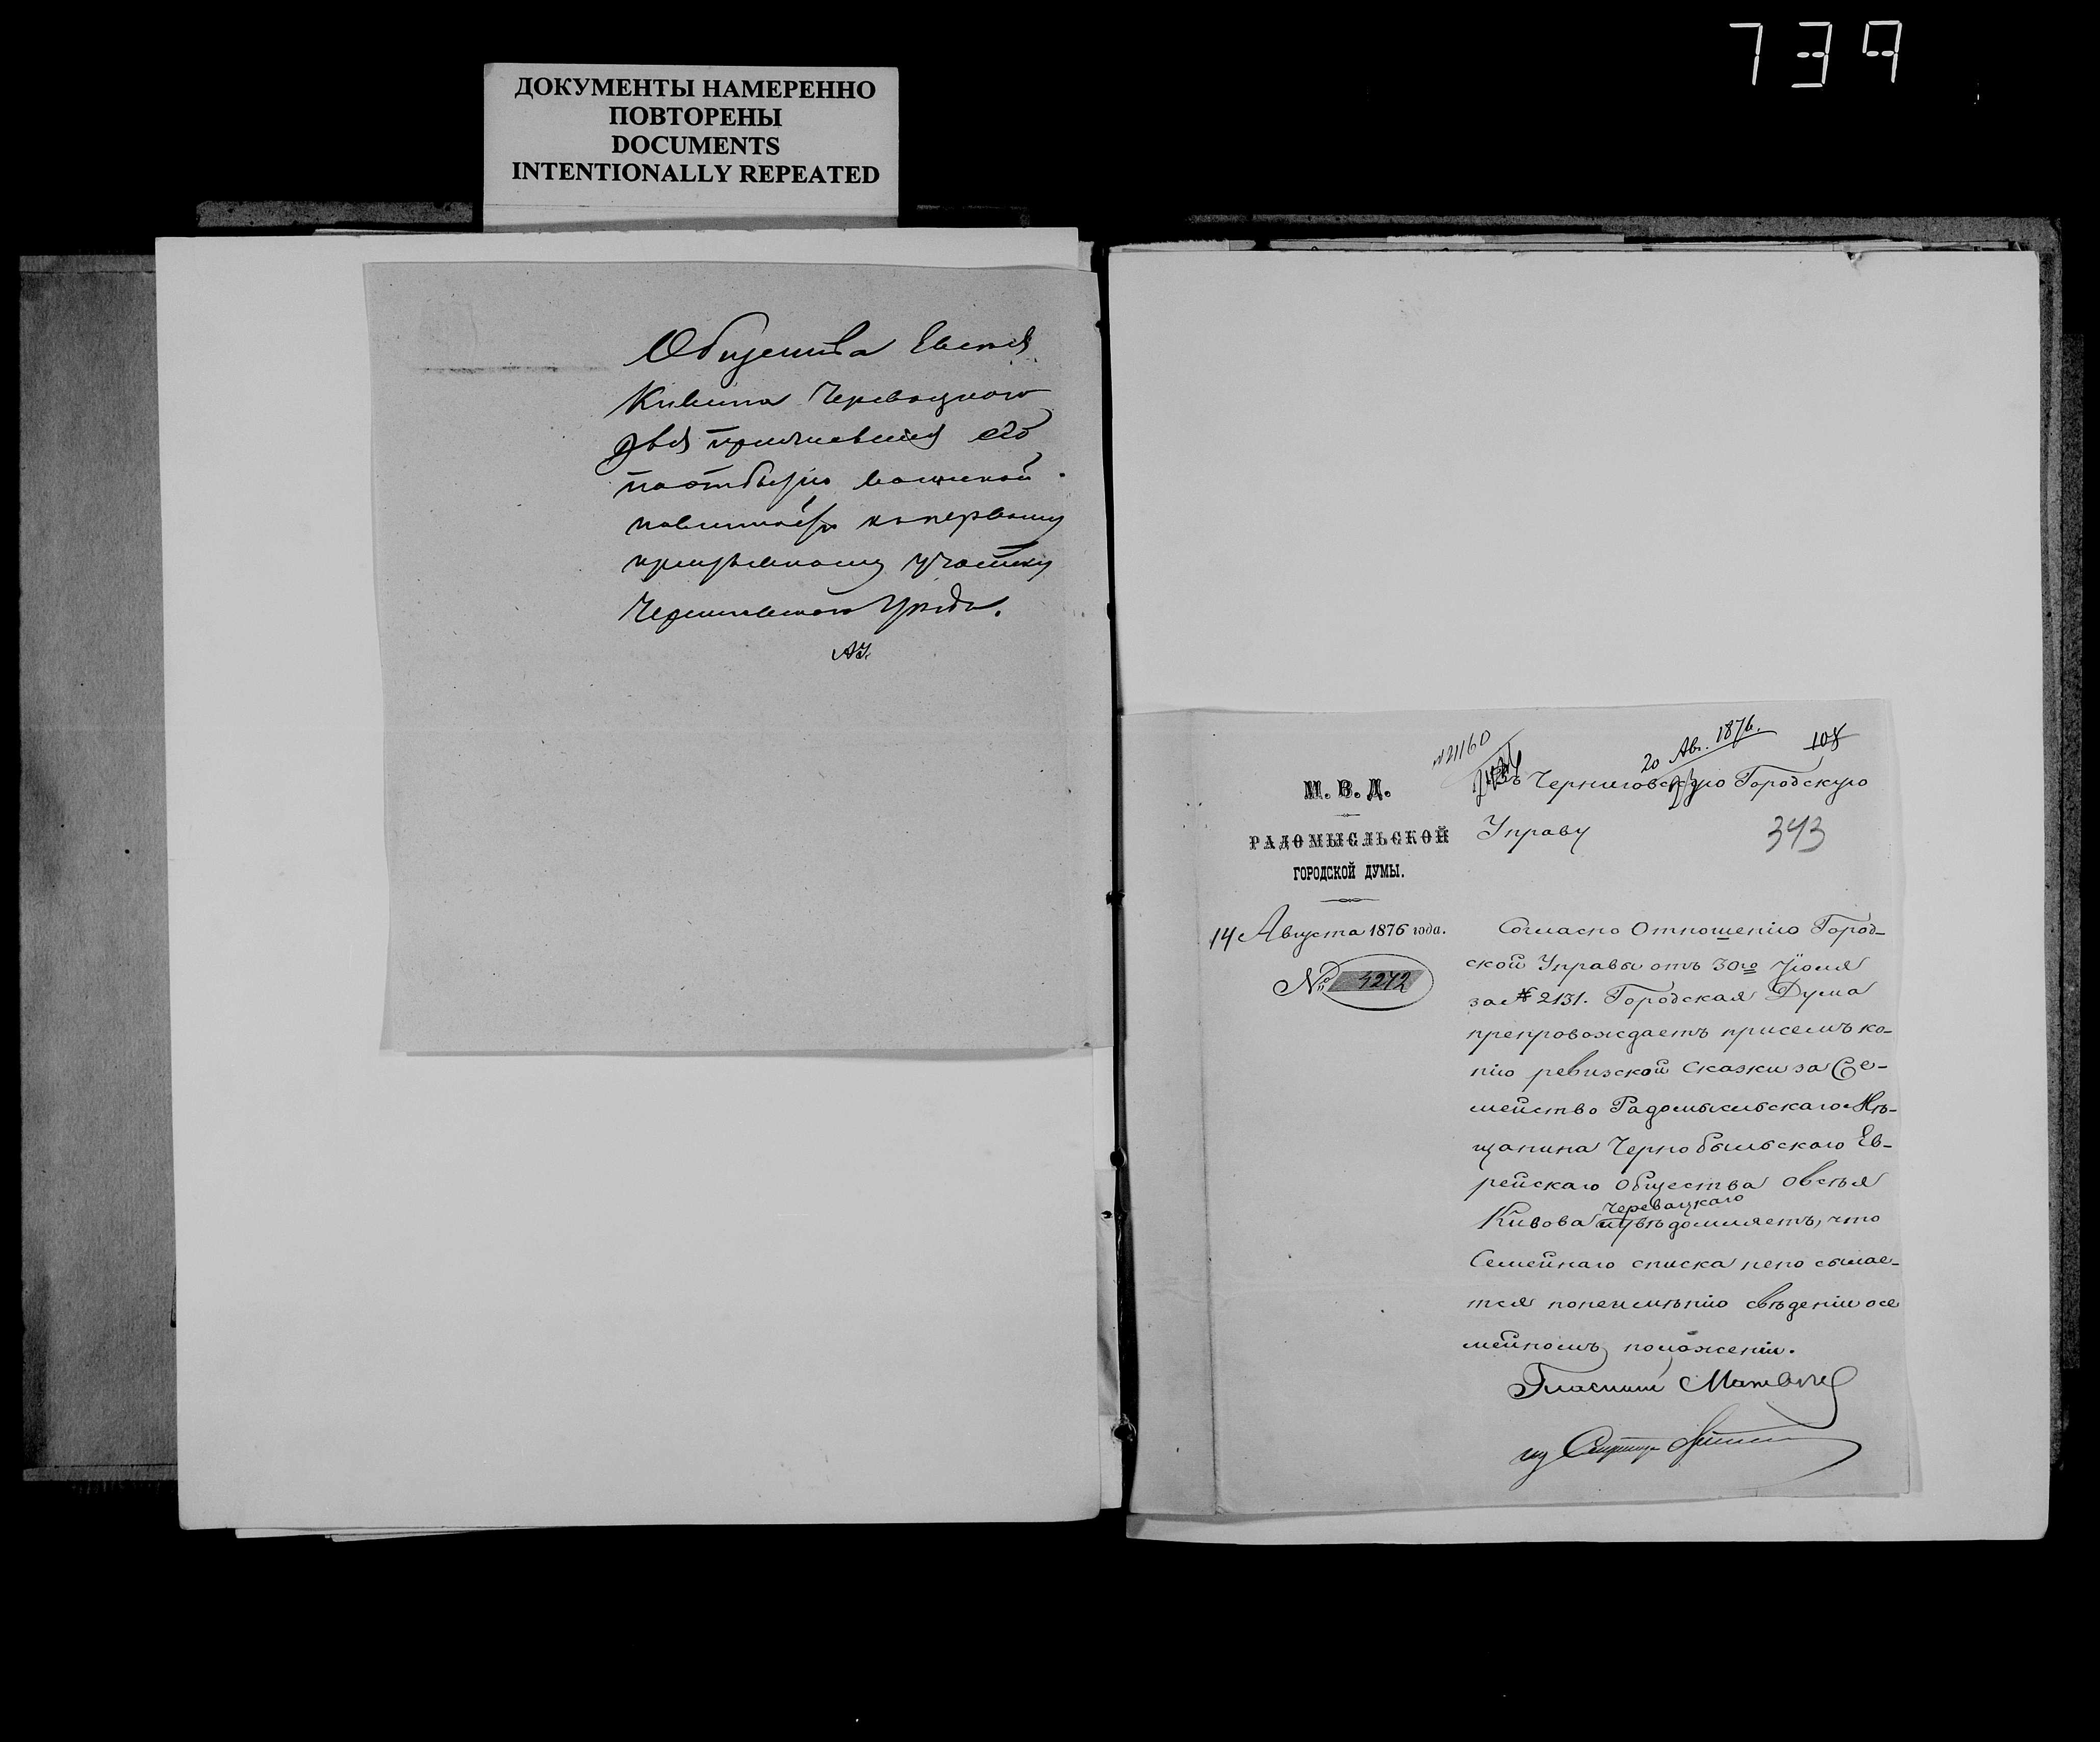 739
ДОКУМЕНТЫ НАМЕРЕННО
ПОВТОРЕНЫ
DOCUMENTS
INTENTIONALLY REPEATED
Общества Евсѣя
Кивина Черевацкого
для приписавшися его
по отбытію воинской
повинности к первому
призывному участку
Черниговского Уѣзда.
№ 21160
20 Авг. 1876.
108
М. В. Д.
РАДОМЫСЛЬСКОЙ
ГОРОДСКОЙ ДУМЫ.
14 Августа 1876 года.
№ 4242
Въ Черниговскую Городскую
Управу
343
Согласно Отношенію Город-
ской Управы отъ 30го Іюля
за № 2131. Городская Дума
препровождаетъ присемъ ко-
пію ревизской сказки за Се-
мейство Радомысльскаго Мѣ-
щанина Чернобыльскаго Ев-
рейскаго Общества Овсѣя
Кивова Черевацкаго увѣдомляетъ, что
Семейнаго списка непосылае-
тся понеимѣнію свѣденіи о се
мейномъ положеніи.
Гласный